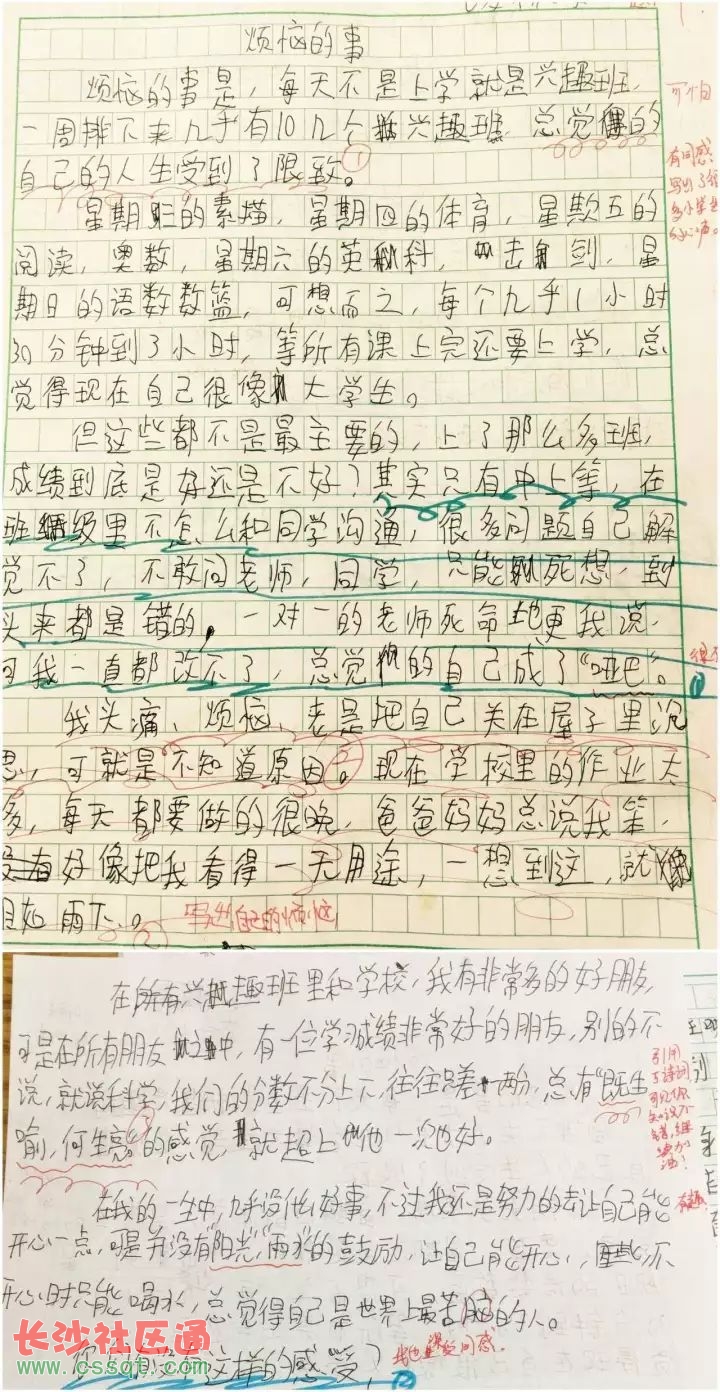 烦恼的事
烦恼的事是，每天不是上学就是兴趣班，
一周排下来几乎有10几个兴趣班，总觉得的
自己的人生受到了限致。
可个白
有同感！
写出了很
多小学生
的心声。
星期三的素描，星期四的体育，星期五的
阅读，奥数，星期六的英科，击剑，星
期日的语数数篮，可想而之，每个几乎1小时
30分钟到3小时，等所有课上完还要上学，总
觉得现在自己很像大学生。
但这些都不是最主要的，上了那么多班，
成绩到底是好还是不好？其实只有中上等，在
班级里不怎么和同学沟通，很多问题自己解
觉不了，不敢问老师，同学，只能死想，到
头来都是错的，一对一的老师死命地更我说，
可我一直都改不了，总觉的自己成了“哑巴”。
我头痛、烦恼、老是把自己关在屋子里沉
思，可就是不知道原因。现在学校里的作业太
多，每天都要做的很晚，爸爸妈妈总说我笨，
好像把我看得一无用途，一想到这，就像
目如雨下。
写出自己的烦恼
在所有兴趣班里和学校，我有非常多的好朋友，
可是在所有朋友之中，有一位学习成绩非常好的朋友，别的不
说，就说科学，我们的分数不分上下，往往只差一两分，总有“既生
喻，何生亮”的感觉，就超上他一次也好。
引用
了诗词
可见你
知识不
错，继
续加
油！
在我的一生中，几乎没什么好事，不过我还是努力的去让自己能
开心一点，可是并没有“阳光”“雨水”的鼓励，让自己能开心，不
开心时只能喝水，总觉得自己是世界上最苦脑的人。
有趣！
这样的感受？
同感。
长沙社区通
www.cssqt.com